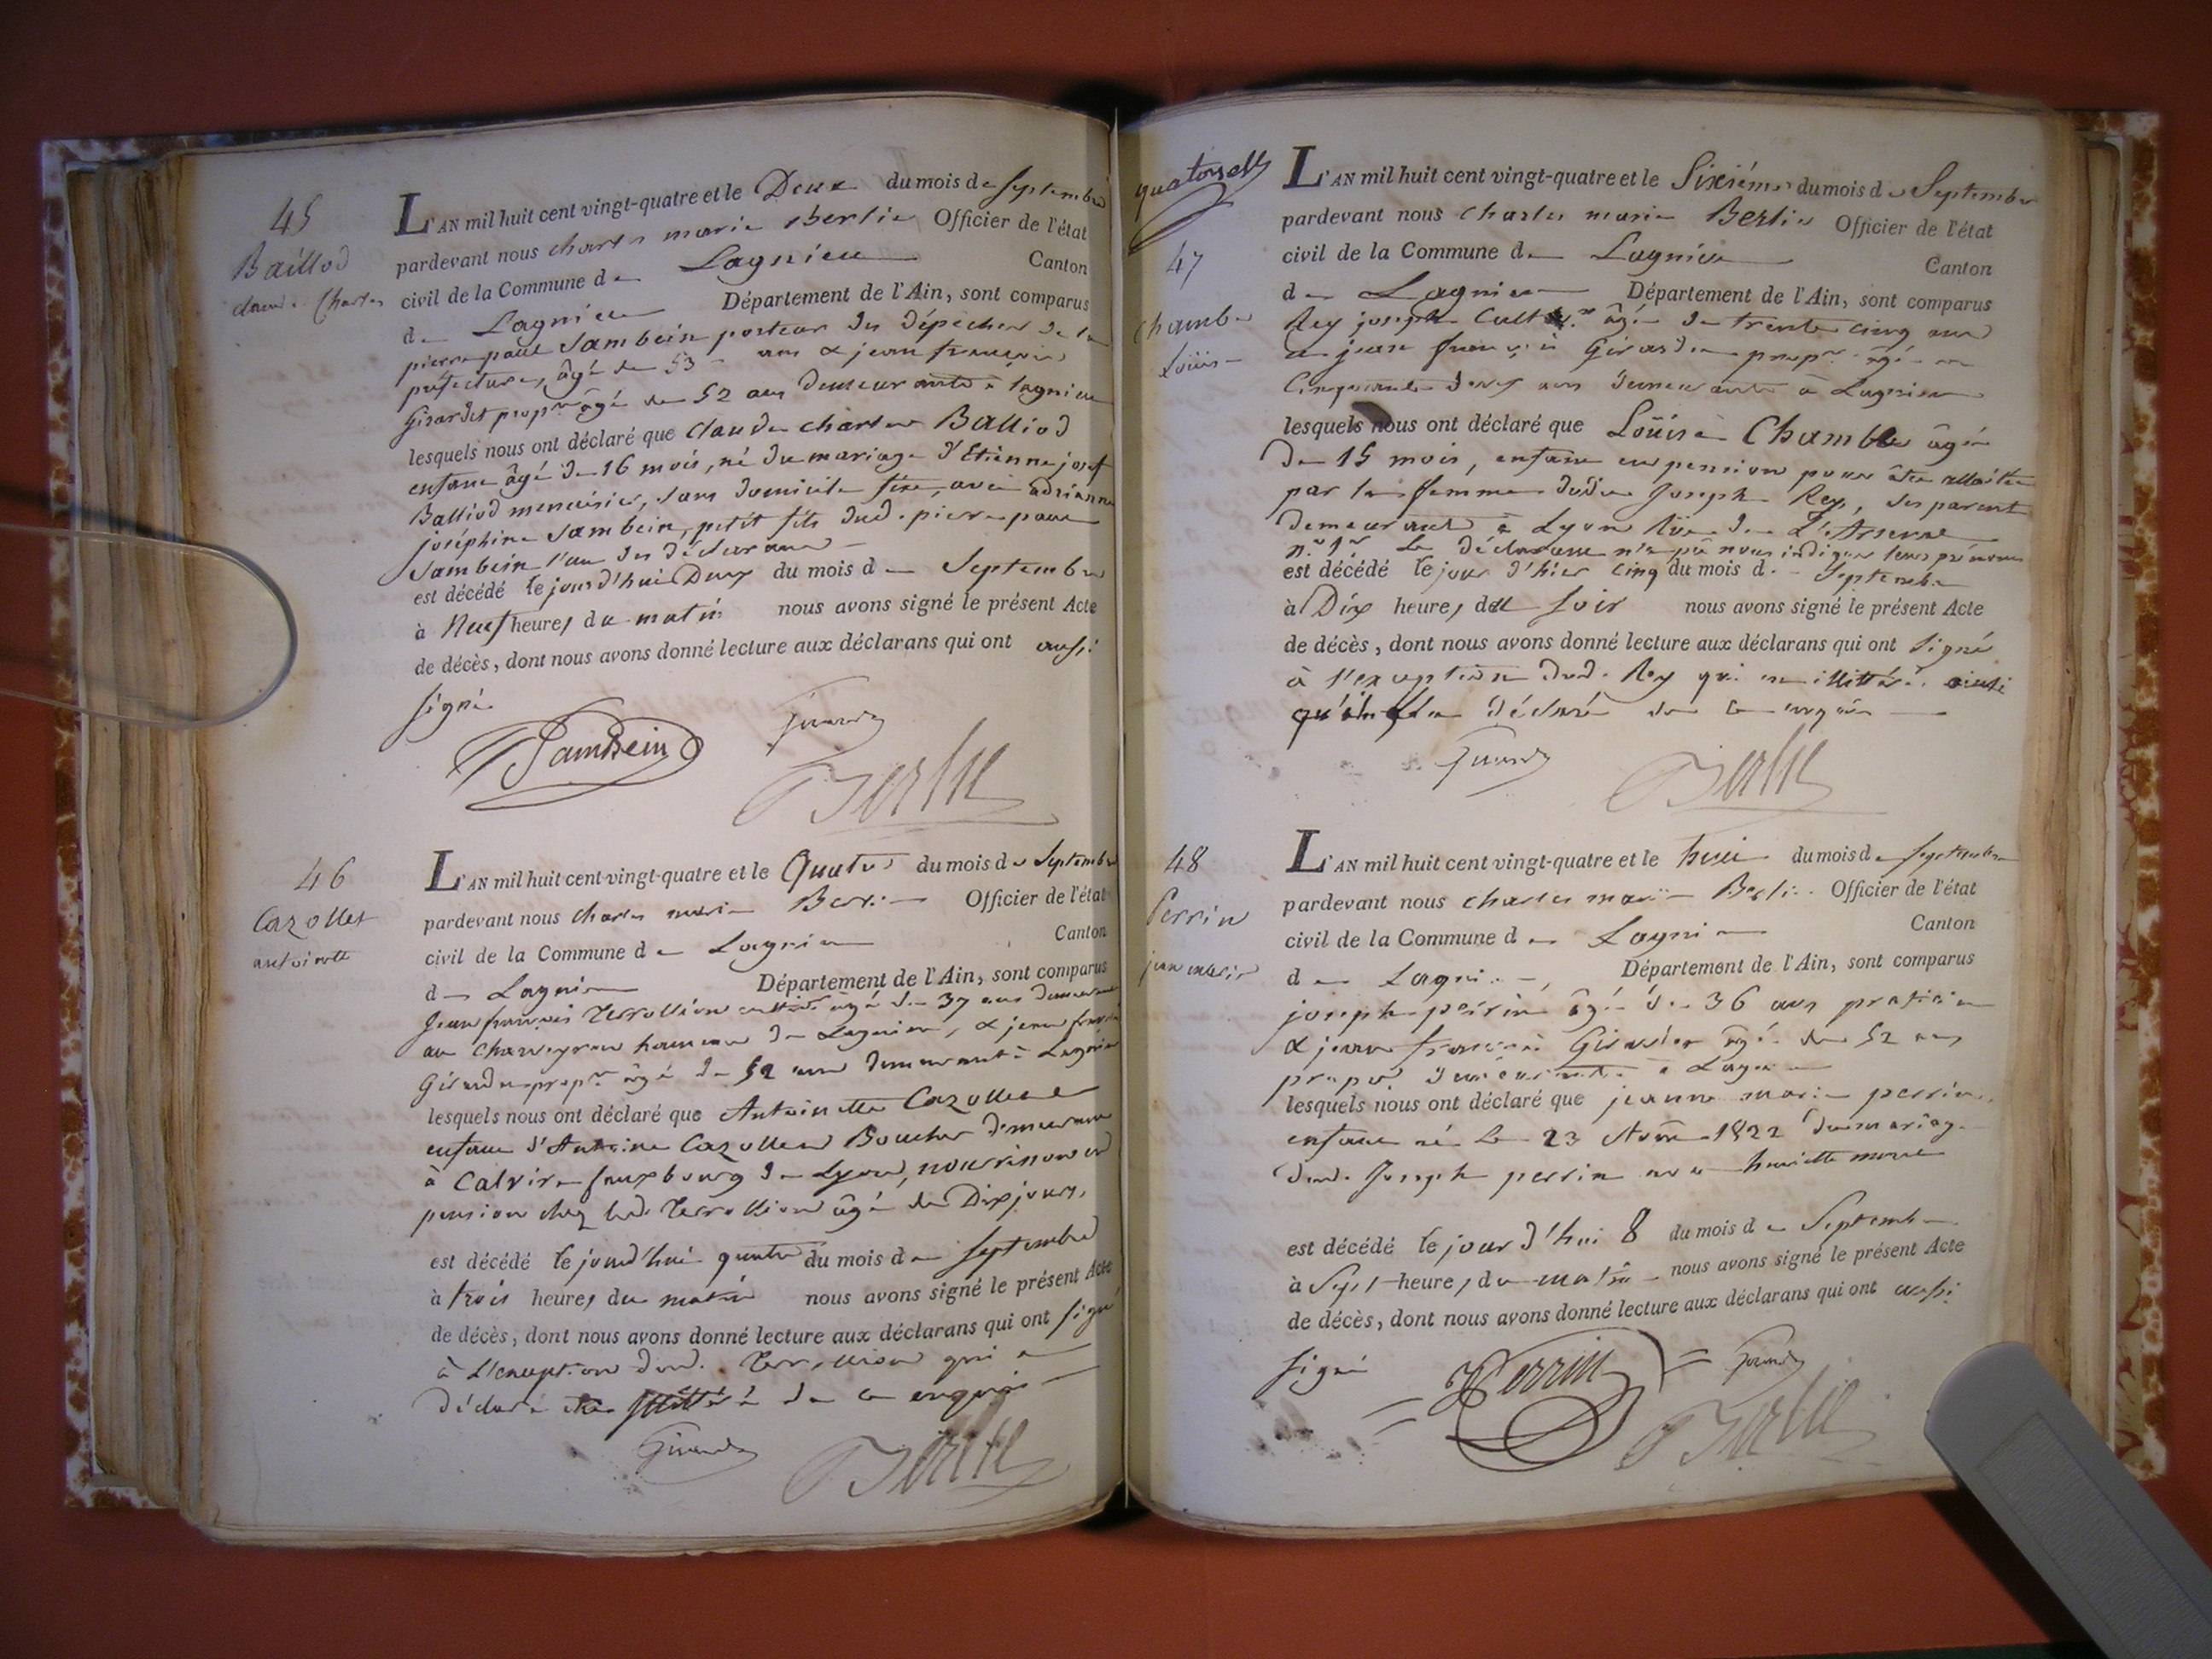 45
Baillod
claude Charles
L'AN mil huit cent vingt-quatre et le Deux du mois de septembre
pardevant nous charles marie Berlie Officier de l'état
civil de la Commune de Lagnieu Canton
de Lagnieu Département de l'Ain, sont comparus
pierre paul Sambein porteur des dépêches de la
préfecture, âgé de 53 ans & jean françois
Girardet propre âgé de 52 ans demeurants à lagnieu
lesquels nous ont déclaré que claude charles Balliod
enfant âgé de 16 mois, né du mariage d'Etienne josef
Balliod menuisier, sans domicile fixe, avec adrianne
joséphine Sambein, petit fils dud. pierre paul
Sambein l'un des déclarans
est décédé le jourd'hui Deux du mois de Septembre
à Neuf heures du matin nous avons signé le présent Acte
de décès, dont nous avons donné lecture aux déclarans qui ont aussi
signé
Sambein
Berlie
46
Cazollet
antoinette
L'AN mil huit cent vingt-quatre et le Quatre du mois de Septembre
pardevant nous charles marie Berlie Officier de l'état
civil de la Commune de Lagnieu Canton
de Lagnieu Département de l'Ain, sont comparus
Jean françois âgé de 37 ans demeurant
au hameau de Lagnieu, & jean françois
propre âgé de 52 ans demeurant à Lagnieu
lesquels nous ont déclaré que Antoinette
enfant d'Antoine Boucher demeurant
à Calvire fauxbourg de Lyon, nourrisson en
pension chez led. âgé de Dix jours,
est décédé le jourd'hui quatre du mois de septembre
à trois heures du matin nous avons signé le présent Acte
de décès, dont nous avons donné lecture aux déclarans qui ont signé
à l'exception dud. qui a
déclaré être illittéré de ce enquis
Berlie
quatorze
47
Chambe
Louis
L'AN mil huit cent vingt-quatre et le Sixième du mois de Septembre
pardevant nous Charles marie Berlie Officier de l'état
civil de la Commune de Lagnieu Canton
de Lagnieu Département de l'Ain, sont comparus
Rey joseph Cultr âgé de trente cinq ans
& jean françois propre âgé de
Cinquante deux ans demeurants à Lagnieu
lesquels nous ont déclaré que Chambe âgé
de 15 mois, enfant en pension pour être allaitée
par la femme dudit Joseph Rey, ses parents
demeurant à Lyon Rue de L'Arsenal
n.o 1er Le déclarant n'a pû nous indiquer leurs prénoms
est décédé le jour d'hier cinq du mois de Septembre
à Dix heures du soir nous avons signé le présent Acte
de décès, dont nous avons donné lecture aux déclarans qui ont signé
à l'exception dud. Rey qui est illittéré ainsi
qu'il l'a déclaré de ce enquis
Berlie
48
Perrin
jean marie
L'AN mil huit cent vingt-quatre et le huit du mois de septembre
pardevant nous charles marie Berlie Officier de l'état
civil de la Commune de Lagnieu Canton
de Lagnieu Département de l'Ain, sont comparus
joseph perrin âgé de 36 ans praticien
& jean françois âgé de 52 ans
propre demeurants à Lagnieu
lesquels nous ont déclaré que jeanne marie perrin
enfant né le 23 1822 du mariage
dud. Joseph perrin avec henriette
est décédé le jour d'hui 8 du mois de Septembre
à Sept heures du matin nous avons signé le présent Acte
de décès, dont nous avons donné lecture aux déclarans qui ont aussi
signé
Perrin
Berlie